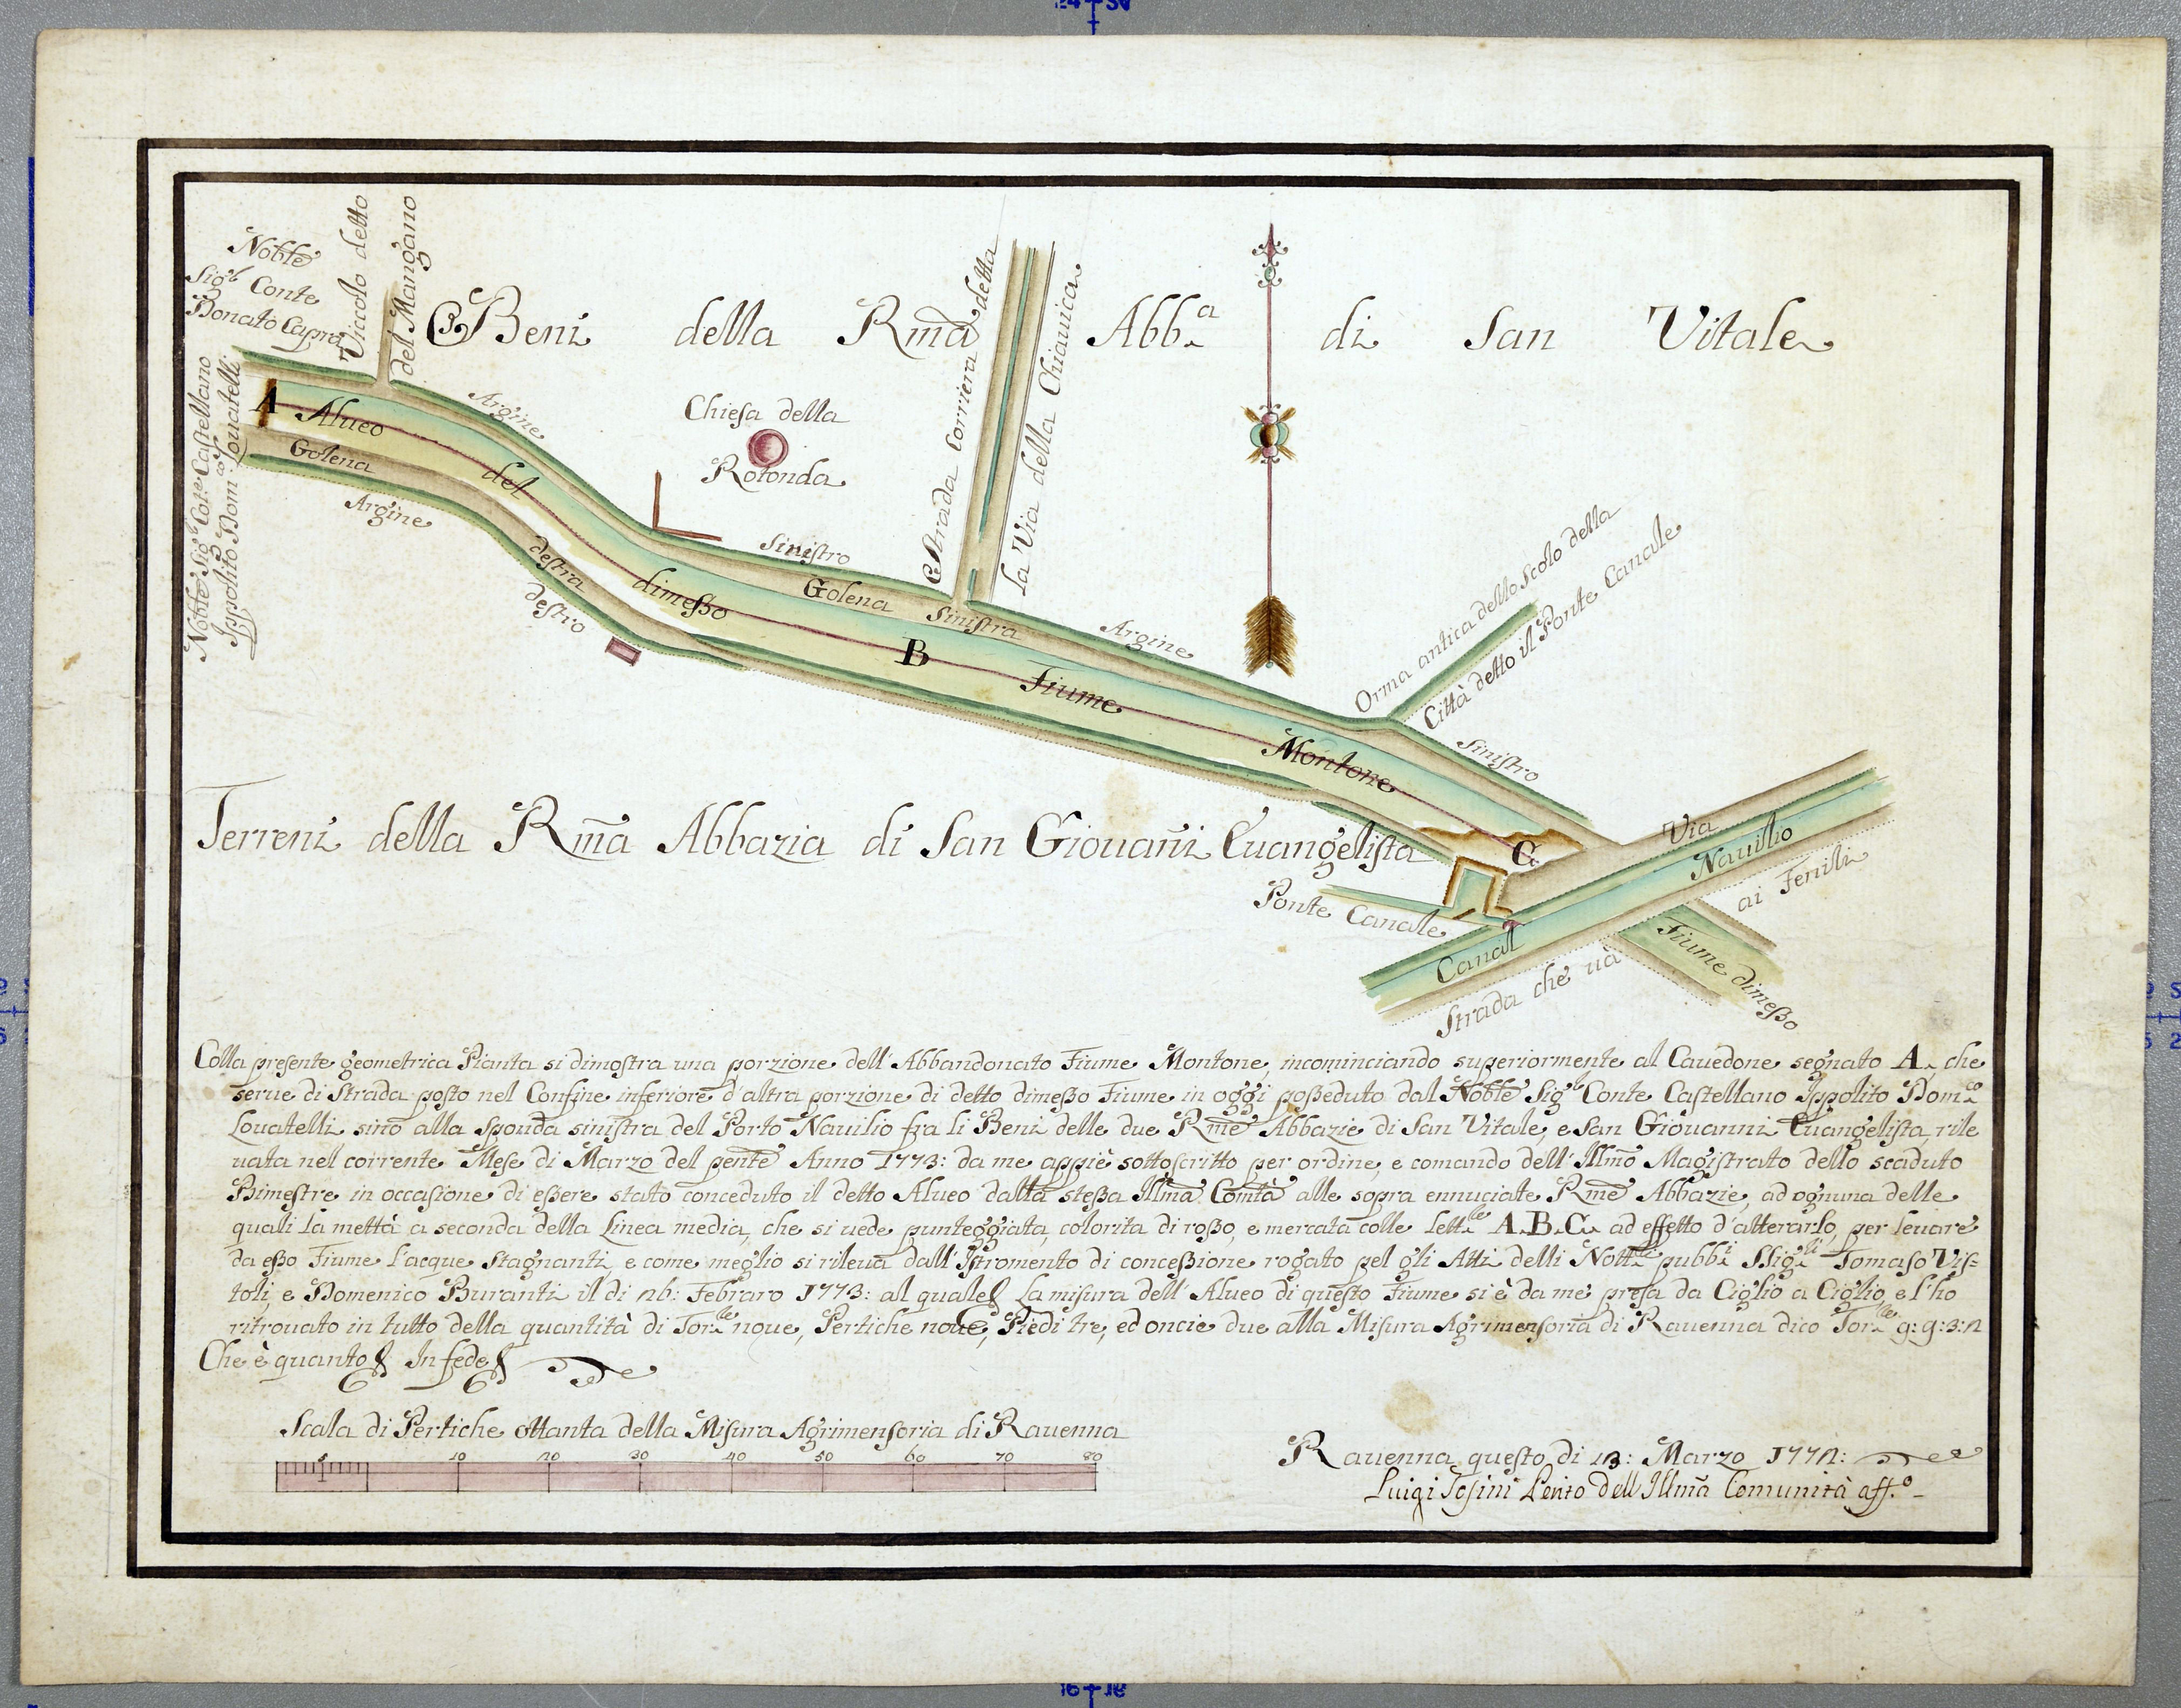 Noble
Sig.r Conte
Donato Capra
Viccolo detto
del Mangano
Beni della Rma Abb.a di San Vitale
Strada Corriera detta
la Via della Chiavica
Noble Sig.r Cote Castellano
Ippolito Dom.co Lovatelli
A Alueo
del
dimesso
B
Fiume
Montone
C
Golena
destra
Argine
destro
Argine
Sinistro
Chiesa della
Rotonda
Golena
Sinistra
Argine
Sinistro
Orma antica dello Scolo della
Città detto il Ponte Canale
Terreni della Rma Abbazia di San Giouañi Euangelista
Ponte Canale
Via
Canal Nauilio
Strada che uà ai Fenili
Fiume dimesso
Colla presente geometrica Pianta si dimostra una porzione dell'Abbandonato Fiume Montone, incominciando superiormente al Cauedone segnato A. che
serue di Strada posto nel Confine inferiore d'altra porzione di detto dimesso Fiume in oggi posseduto dal Noble Sig.r Conte Castellano Ippolito Dom.co
Louatelli sino alla Sponda sinistra del Porto Nauilio fra li Beni delle due Rme Abbazie di San Vitale, e San Giouanni Euangelista, rile
uata nel corrente Mese di Marzo del pente Anno 1773: da me appiè sottoscritto per ordine, e comando dell'Illmo Magistrato dello scaduto
Bimestre in occasione di essere stato conceduto il detto Alueo dalla stessa Illma Comtà alle sopra ennuciate Rme Abbazie, ad ognuna delle
quali la mettà a seconda della Linea media, che si uede punteggiata, colorita di rosso, e mercata colle lett.re A.B.C. ad effetto d'atterarlo, per leuare
da esso Fiume l'acque Stagnanti, e come meglio si rileua dall'Istromento di concessione rogato pel gli Atti delli Nott.i pubb.i SSig.ri Tomaso Vis=
toli, e Domenico Buranti il di 26: Febraro 1773: al quale La misura dell'Alueo di questo Fiume si è da me presa da Ciglio a Ciglio, e l'hò
ritrouato in tutto della quantità di Tor.re noue, Pertiche noue, Piedi tre, ed oncie due alla Misura Agrimensoria di Rauenna dico Tor.re 9:9:3:2
Che è quanto In fede
Scala di Pertiche ottanta della Misura Agrimensoria di Rauenna
5 10 20 30 40 50 60 70 80
Rauenna questo di 13: Marzo 1772:
Luigi Tosini Perito dell'Illma Comunità aff.o